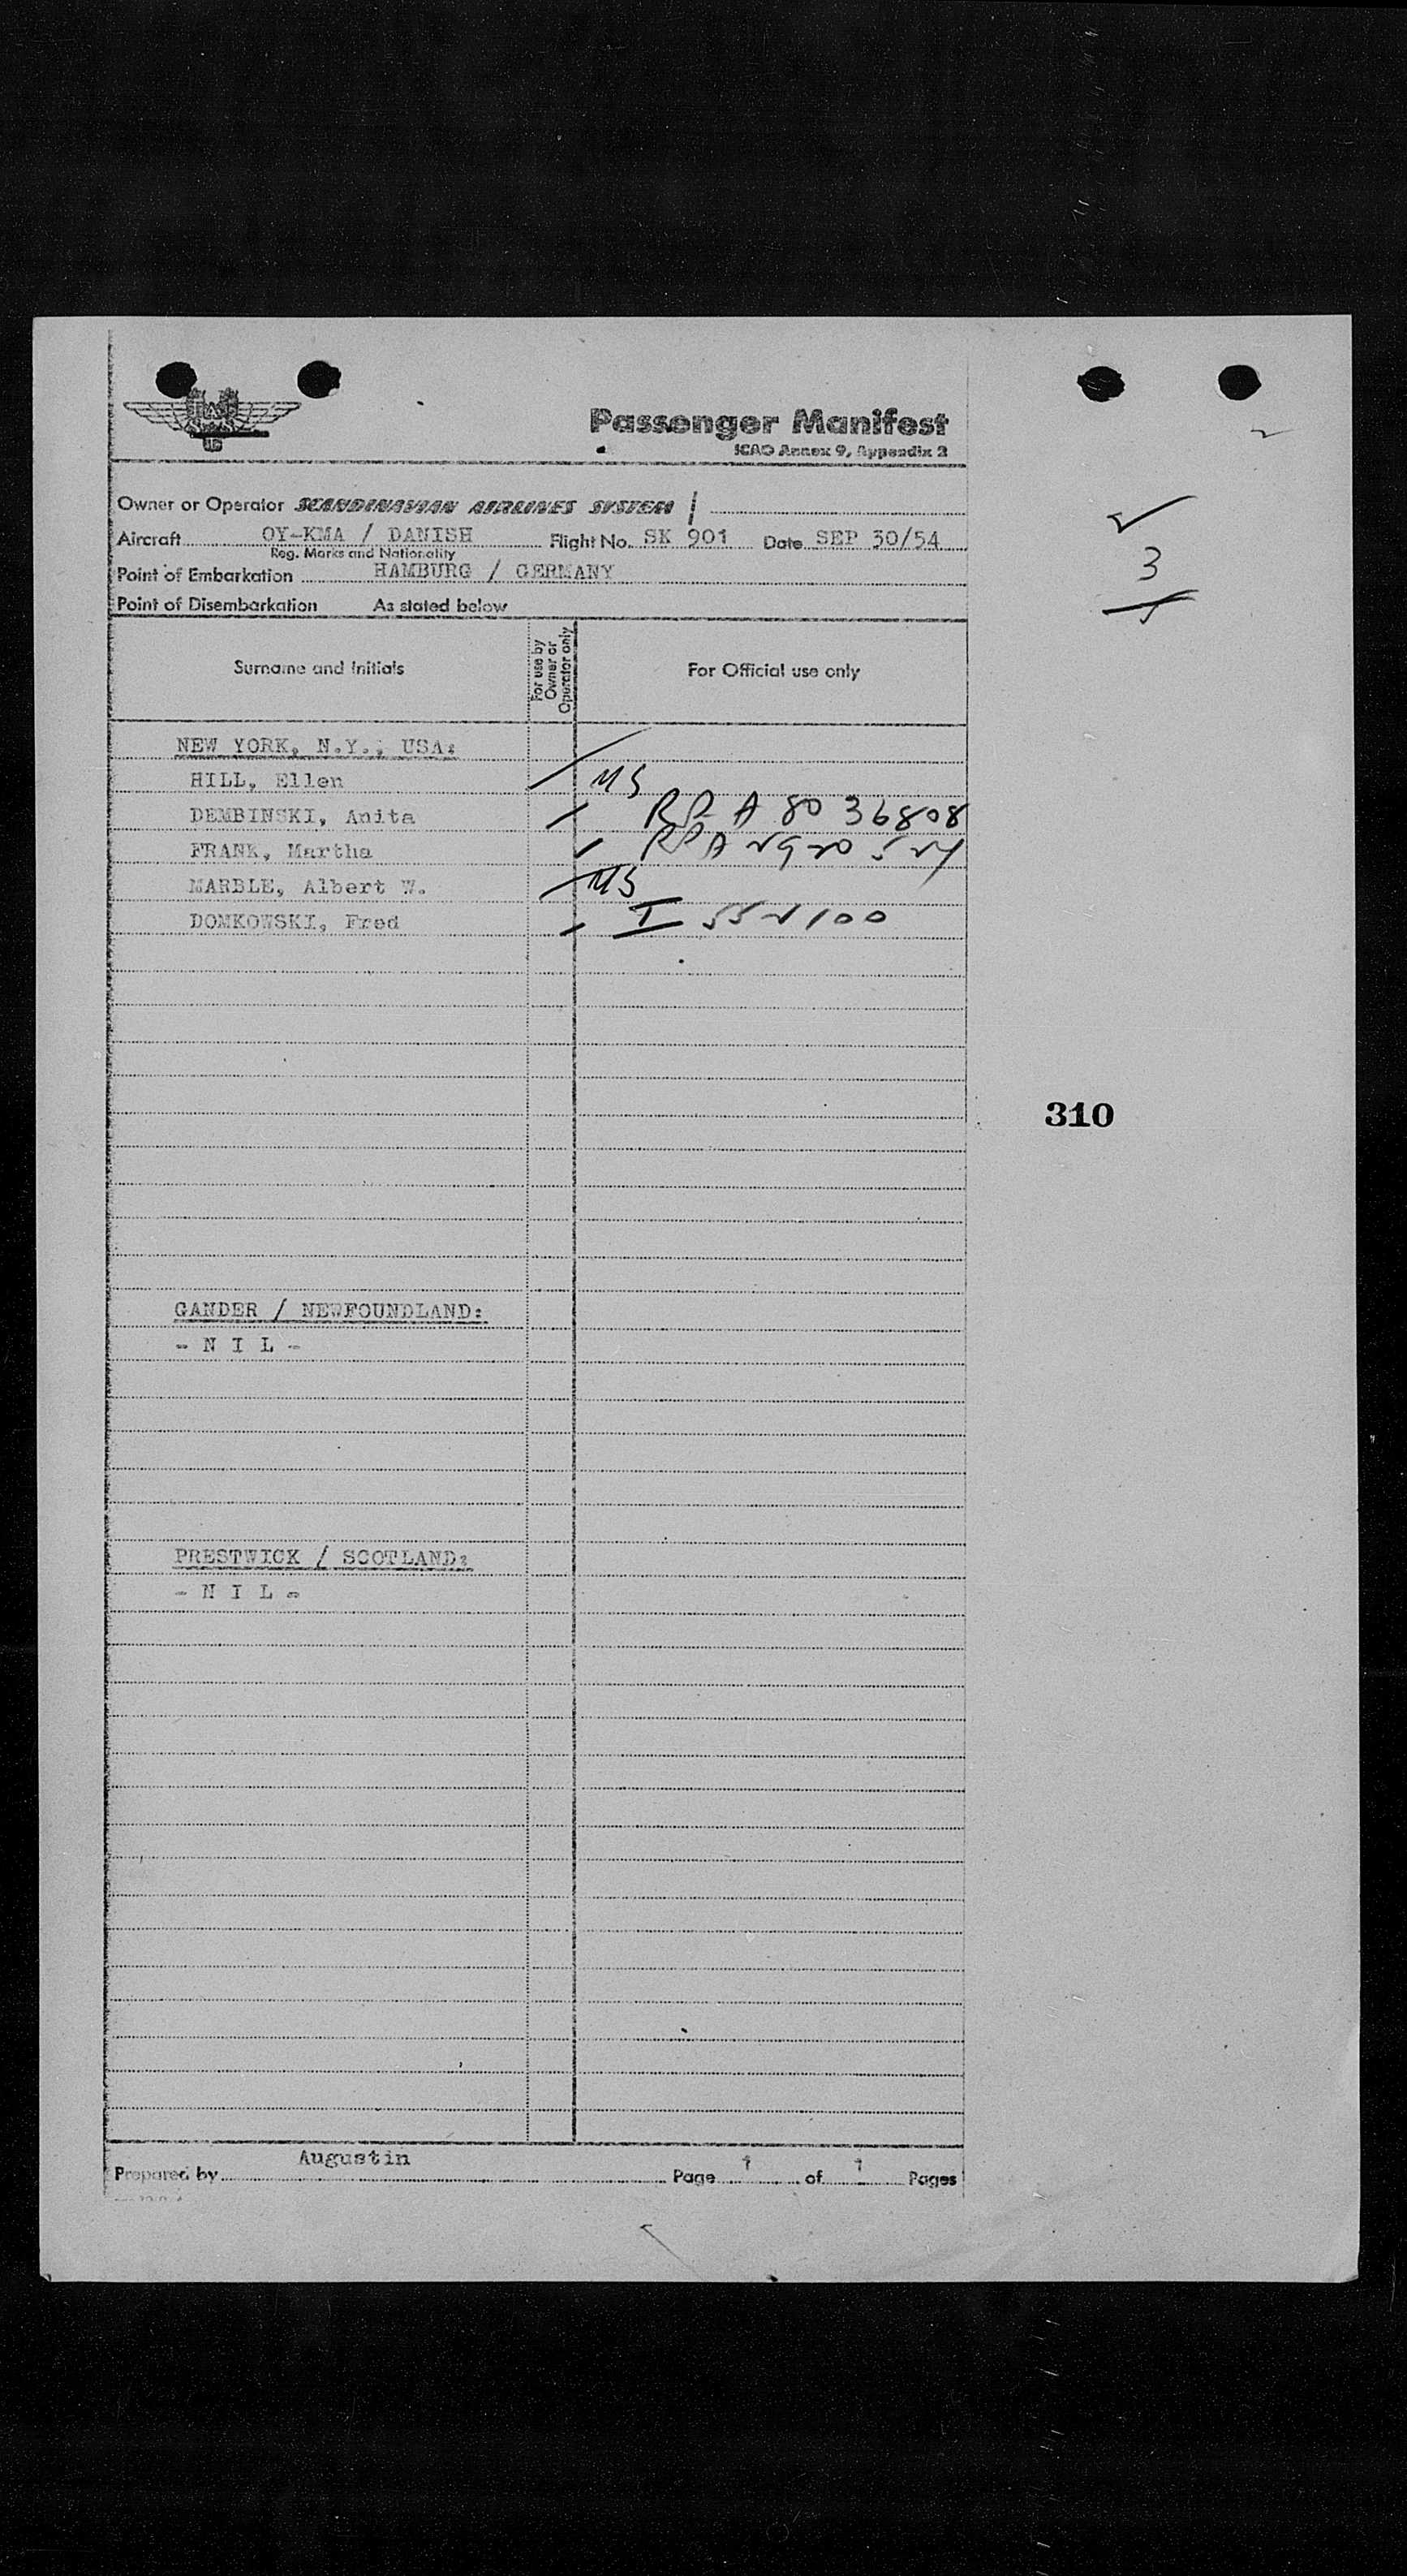 Passenger Manifest
ICAO Annex 9, Appendix 2
Owner or Operator SCANDINAVIAN AIRLINES SYSTEM
Aircraft OY-KMA / DANISH Flight No. SK 901 Date SEP 30/54
Reg. Marks and Nationality
Point of Embarkation HAMBURG / GERMANY
Point of Disembarkation As stated below
3
Surname and Initials
For use by Owner or Operator only
For Official use only
NEW YORK, N.Y., USA:
HILL, Ellen US
DEMBINSKI, Anita RP A 80 36808
FRANK, Martha RP A
MARBLE, Albert W. US
DOMKOWSKI, Fred I 552100
310
GANDER / NEWFOUNDLAND:
- N I L -
PRESTWICK / SCOTLAND:
- N I L -
Prepared by Augustin Page 1 of 1 Pages